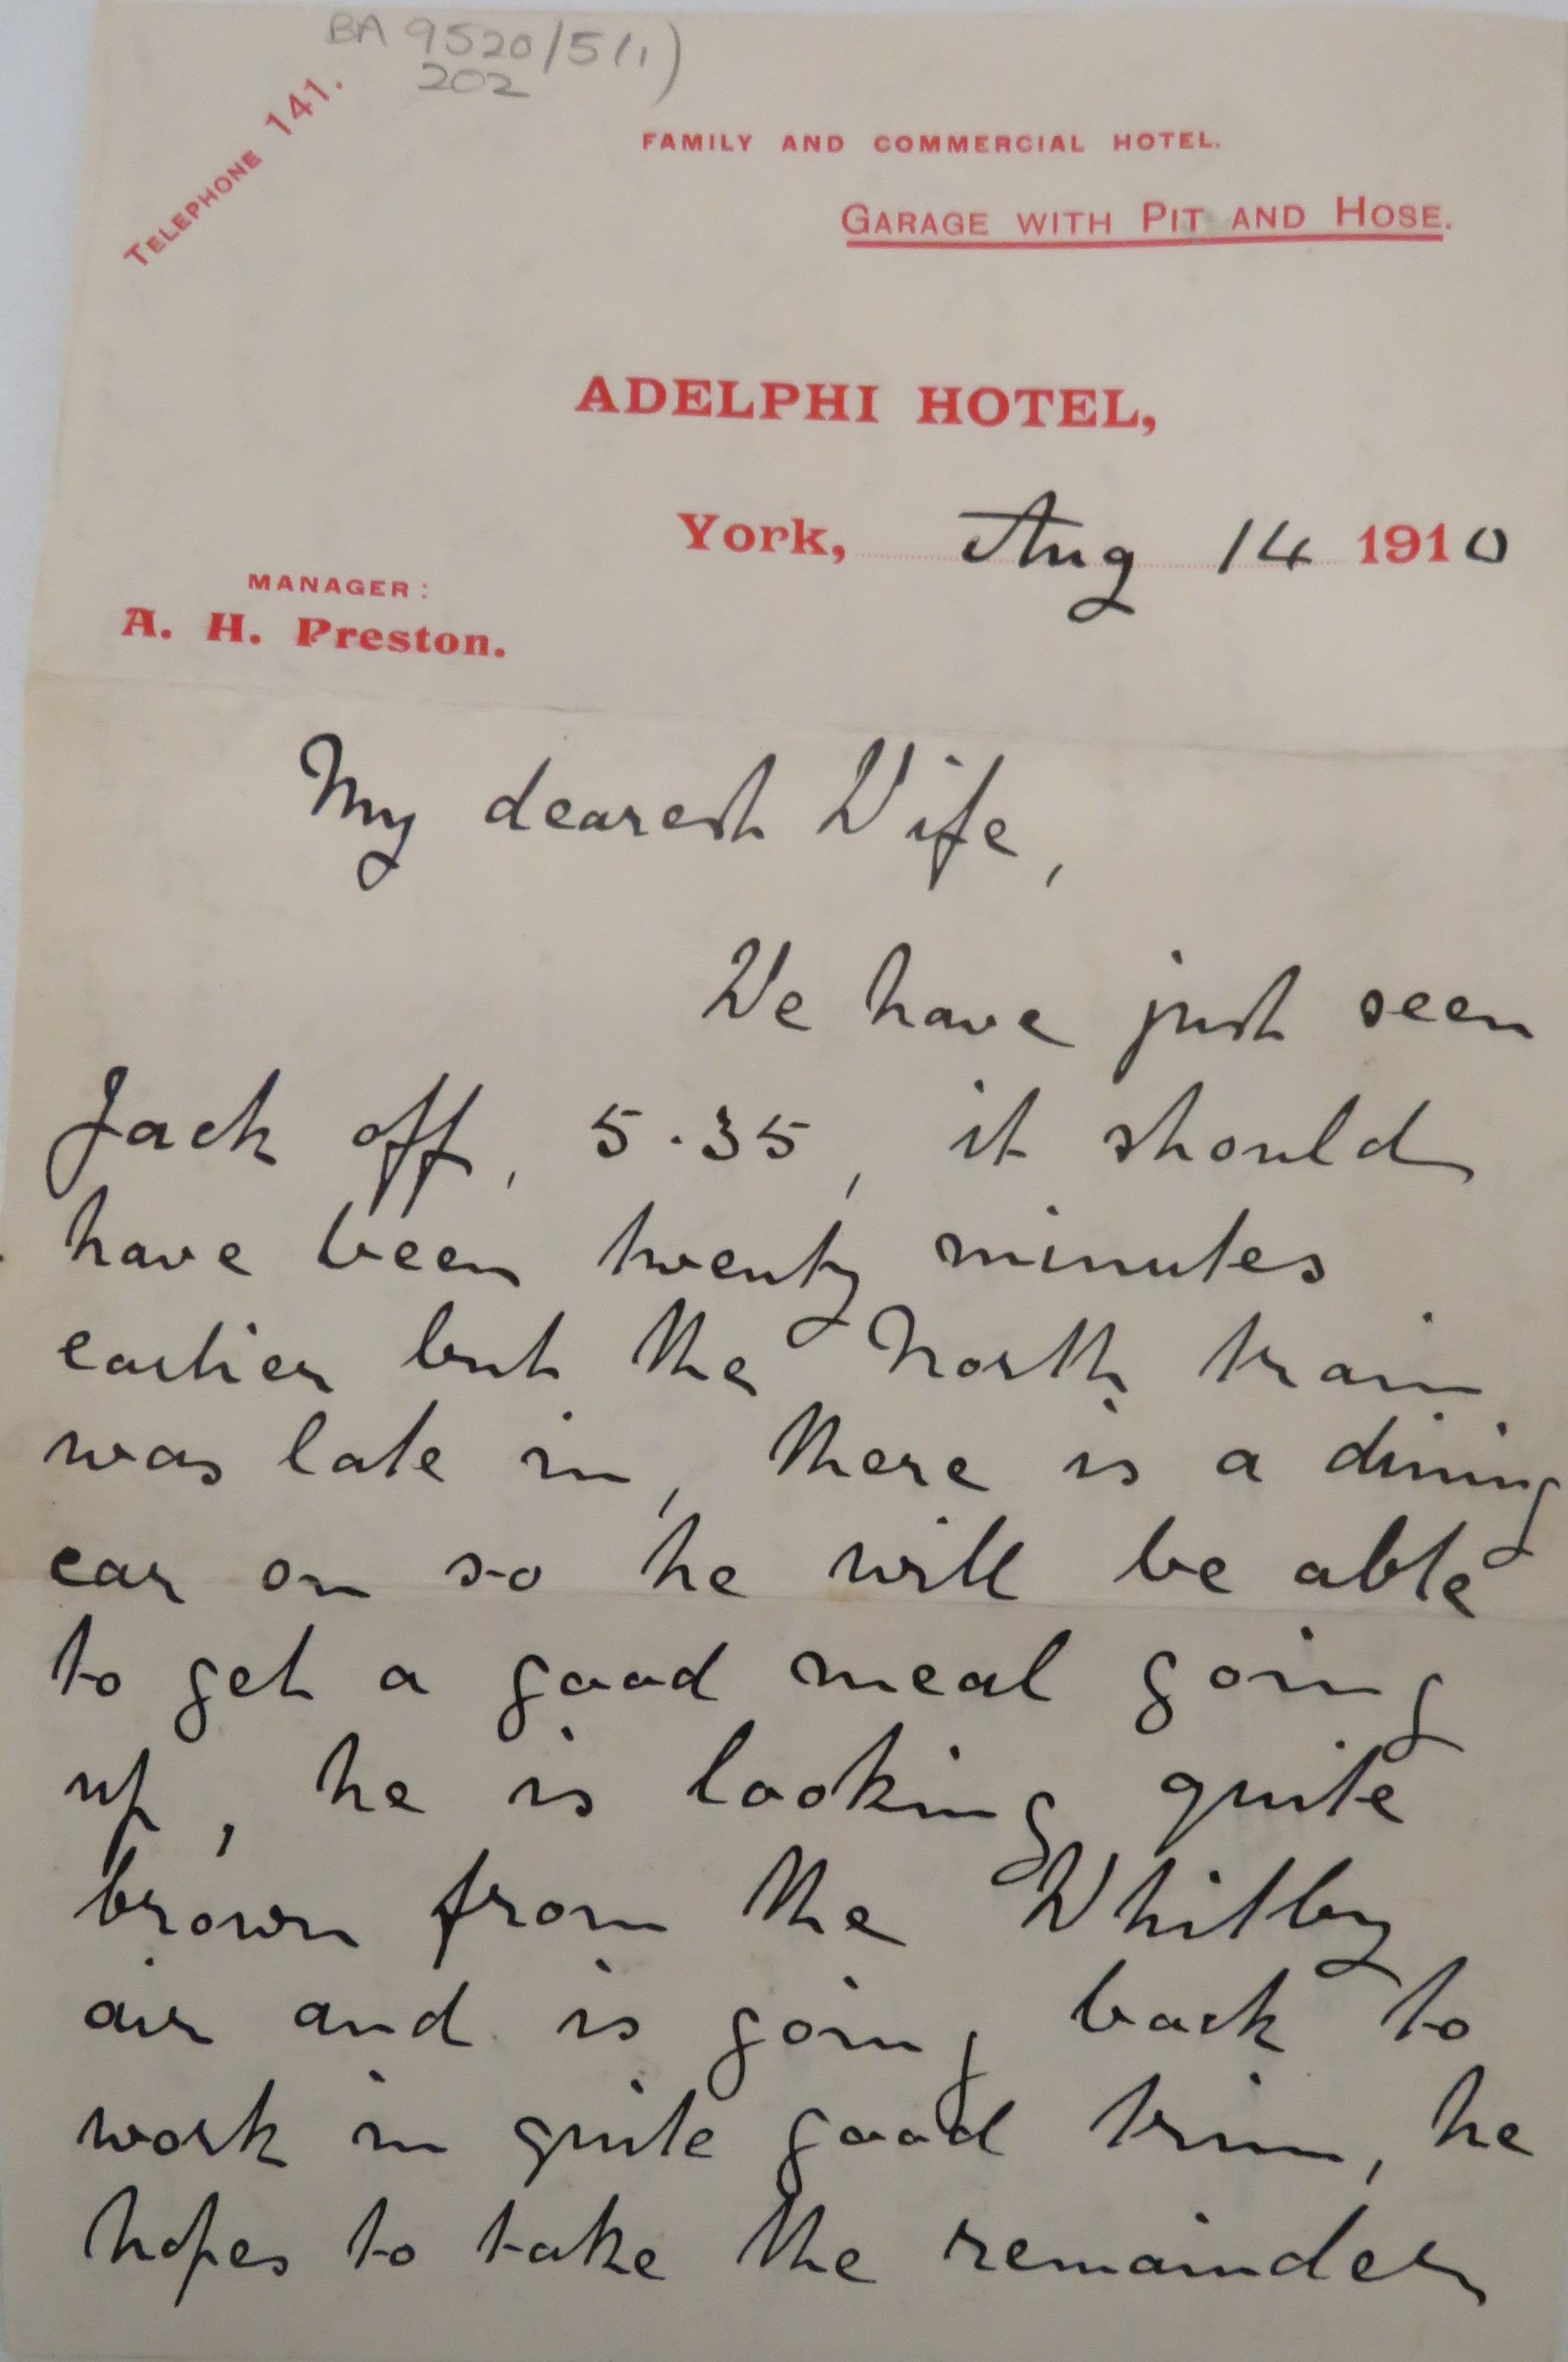 BA 9520/5(1)
202
TELEPHONE 141.
FAMILY AND COMMERCIAL HOTEL.
GARAGE WITH PIT AND HOSE.
ADELPHI HOTEL,
York, Aug 14 1910
MANAGER:
A. H. Preston.
My dearest Wife,
We have just seen
Jack off, 5.35, it should
have been twenty minutes
earlier but the North train
was late in, there is a dining
car on so he will be able
to get a good meal going
up, he is looking quite
brown from the Whitby
air and is going back to
work in quite good trim, he
hopes to take the remainder